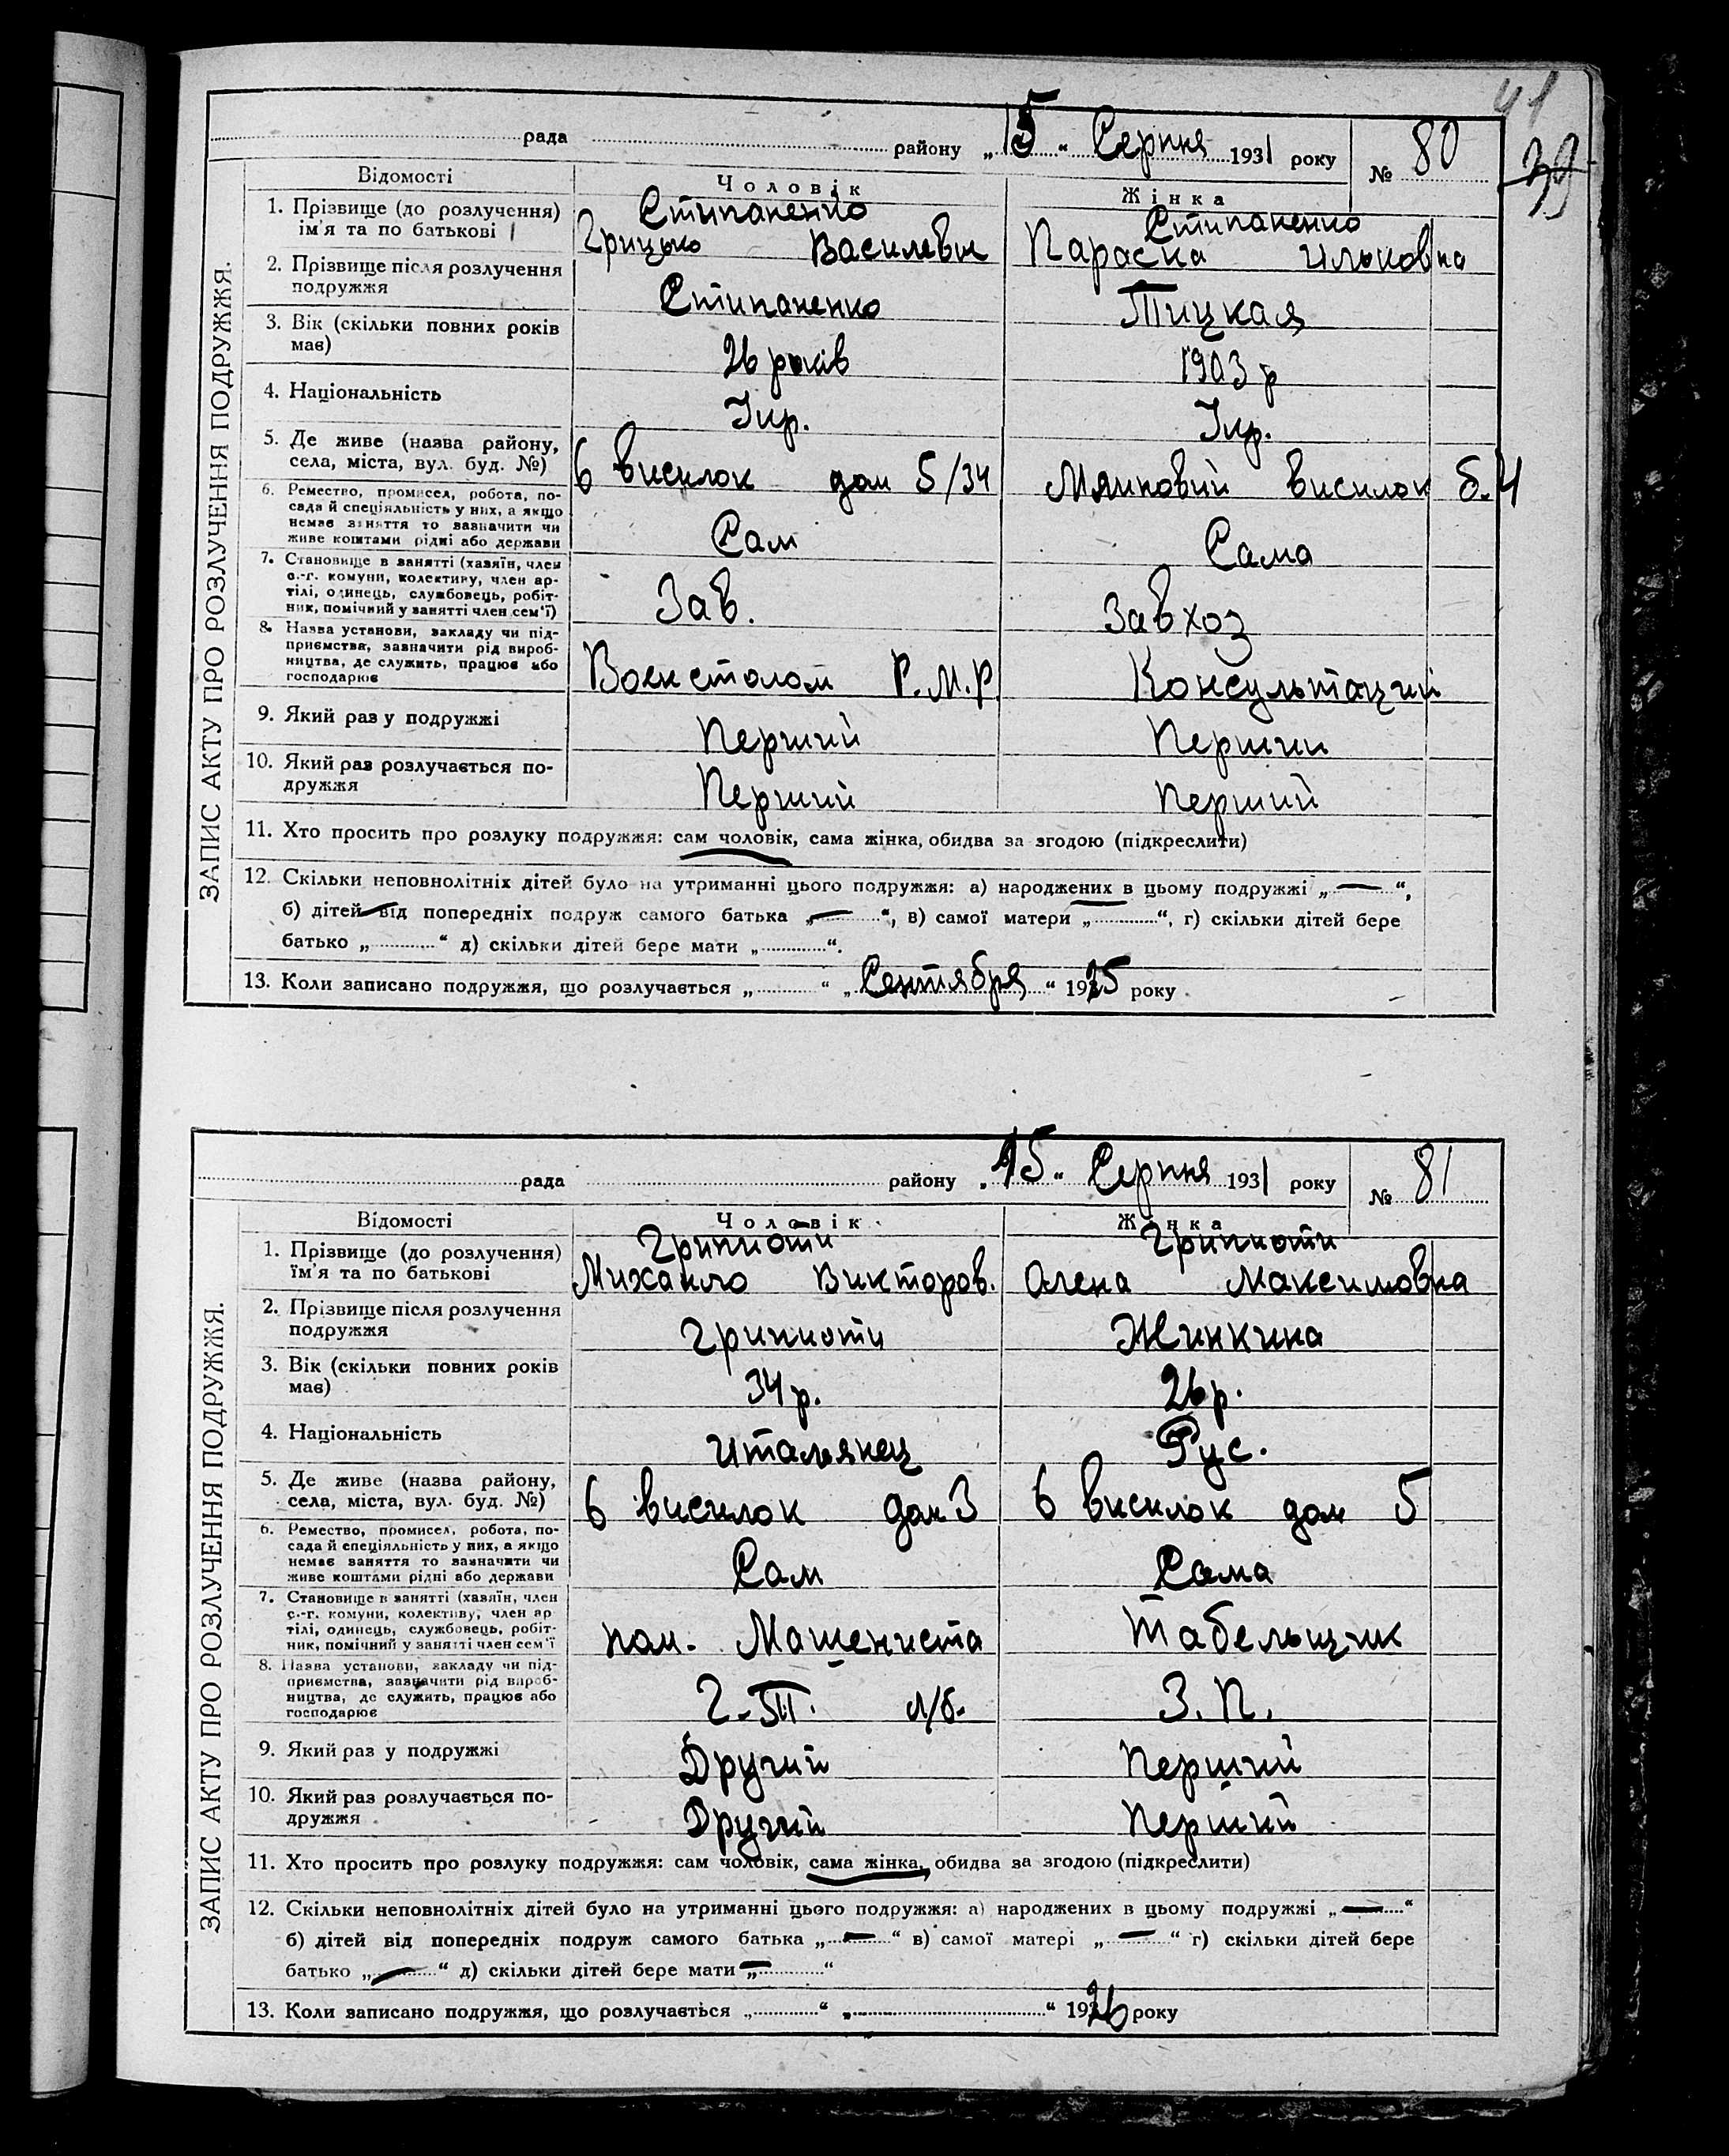 41
39
рада району „15“ Серпня 1931 року № 80
ЗАПИС АКТУ ПРО РОЗЛУЧЕННЯ ПОДРУЖЖЯ.
Відомості Чоловік Жінка
1. Прізвище (до розлучення) Стипаненко Стипаненко
ім'я та по батькові Грицько Василевич Параска Ильковна
2. Прізвище після розлучення
подружжя Стипаненко Тицкая
3. Вік (скільки повних років
має) 26 років 1903 р
4. Національність Укр. Укр.
5. Де живе (назва району,
села, міста, вул. буд. №) 6 висилок дом 5/34 висилок б. 4
6. Ремество, промисел, робота, по-
сада й спеціяльність у них, а якщо
немає заняття то зазначити чи
живе коштами рідні або держави Сам Сама
7. Становище в занятті (хазяїн, член
с.-г. комуни, колективу, член ар-
тілі, одинець, службовець, робіт-
ник, помічний у занятті член сем'ї) Зав. Завхоз
8. Назва установи, закладу чи під-
приємства, зазначити рід вироб-
ництва, де служить, працює або
господарює Воен столом Р.М.Р. Консультации
9. Який раз у подружжі Перший Перший
10. Який раз розлучається по-
дружжя Перший Перший
11. Хто просить про розлуку подружжя: сам чоловік, сама жінка, обидва за згодою (підкреслити)
12. Скільки неповнолітніх дітей було на утриманні цього подружжя: а) народжених в цьому подружжі „—“,
б) дітей від попередніх подруж самого батька „—“, в) самої матери „ “, г) скільки дітей бере
батько „ “ д) скільки дітей бере мати „ “.
13. Коли записано подружжя, що розлучається „ “ „Сентября“ 1925 року
рада району „15“ Серпня 1931 року № 81
ЗАПИС АКТУ ПРО РОЗЛУЧЕННЯ ПОДРУЖЖЯ.
Відомості Чоловік Жінка
1. Прізвище (до розлучення) Грипиоти Грипиоти
їм'я та по батькові Михаило Викторов. Олена Максимовна
2. Прізвище після розлучення
подружжя Грипиоти Жинкина
3. Вік (скільки повних років
має) 34 р. 26 р.
4. Національність Итальянец Рус.
5. Де живе (назва району,
села, міста, вул. буд. №) 6 висилок дом 3 6 висилок дом 5
6. Ремество, промисел, робота, по-
сада й спеціяльність у них, а якщо
немає заняття то зазначити чи
живе коштами рідні або держави Сам Сама
7. Становище в занятті (хазяїн, член
с.-г. комуни, колективу, член ар
тілі, одинець, службовець, робіт-
ник, помічний у занятті член сем'ї пом. Машениста Табельщик
8. Назва установи, закладу чи під-
приємства, зазначити рід вироб-
ництва, де служить, працює або
господарює З.П.
9. Який раз у подружжі Другий Перший
10. Який раз розлучається по-
дружжя Другий Перший
11. Хто просить про розлуку подружжя: сам чоловік, сама жінка, обидва за згодою (підкреслити)
12. Скільки неповнолітніх дітей було на утриманні цього подружжя: а) народжених в цьому подружжі „—“
б) дітей від попередніх подруж самого батька „—“ в) самої матері „—“ г) скільки дітей бере
батько „—“ д) скільки дітей бере мати „—“
13. Коли записано подружжя, що розлучається „ “ „ “ 1926 року